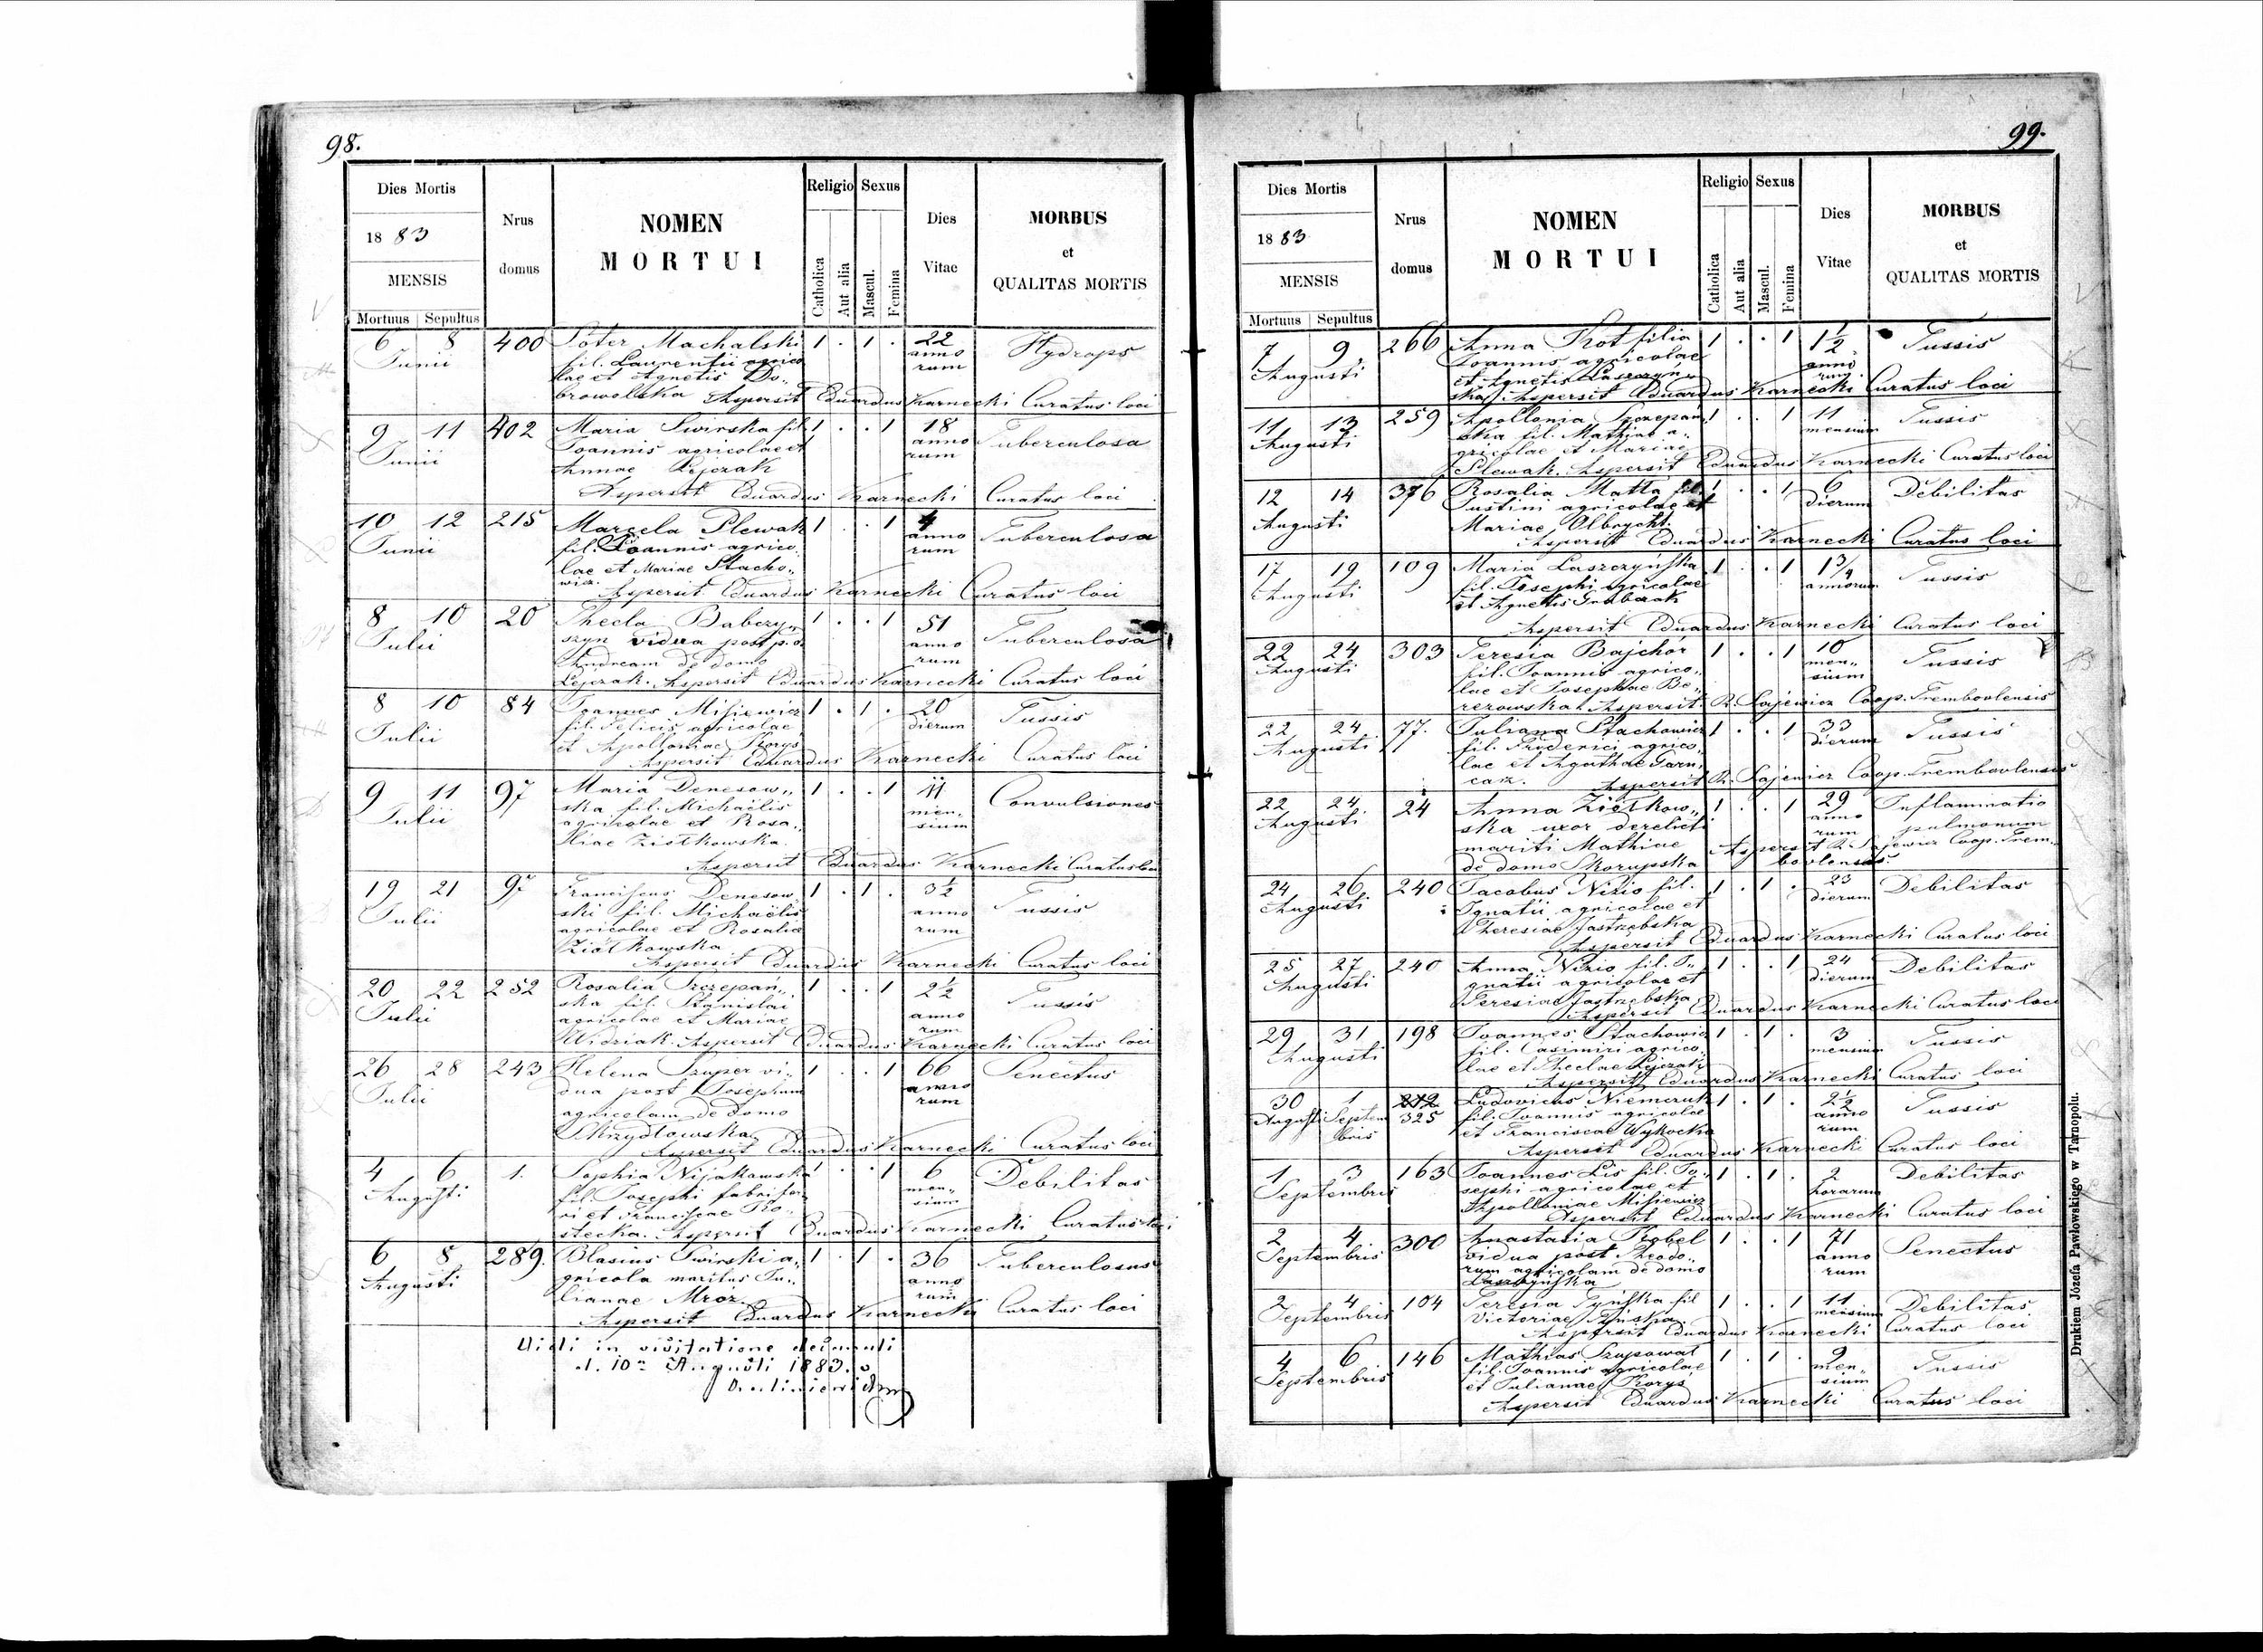 98.
Dies Mortis
Nrus domus
NOMEN MORTUI
Religio
Sexus
Dies Vitae
MORBUS et QUALITAS MORTIS
1883
MENSIS
Mortuus Sepultus
Catholica
Aut alia
Mascul.
Femina
6 8 400 Soter Machalski 1 . 1 . 22 Hydrops
Junii fil. Laurentii agrico anno
lae et Agnetis Do„ rum
browolska Aspersit Eduardus Karnecki Curatus loci
9 11 402 Maria Swirska fil. 1 . . 1 18 Tuberculosa
Junii Joannis agricolae et anno
Annae Lejczak rum
Aspersit Eduardus Karnecki Curatus loci
10 12 215 Marcela Plewak 1 . . 1 4 Tuberculosa
Junii fil. Joannis agrico anno
lae et Mariae Stacho„ rum
wicz.
Aspersit Eduardus Karnecki Curatus loci
8 10 20 Thecla Babczy„ 1 . . 1 51 Tuberculosa
Julii szyn vidua post p.d. anno
Andream de domo rum
Lejczak. Aspersit Eduardus Karnecki Curatus loci
8 10 84 Joannes Misiewicz 1 . 1 . 20 Tussis
Julii fil. Felicis agricolae dierum
et Apolloniae Korys
Aspersit Eduardus Karnecki Curatus loci
9 11 97 Maria Denesow„ 1 . . 1 11 Convulsiones
Julii ska fil. Michaëlis men„
agricolae et Rosa„ sium
liae Ziółkowska.
Aspersit Eduardus Karnecki Curatus loci
19 21 97 Franciscus Denesow 1 . 1 . 3½ Tussis
Julii ski fil. Michaëlis anno
agricolae et Rosalia rum
Ziółkowska
Aspersit Eduardus Karnecki Curatus loci
20 22 252 Rosalia Szczepan„ 1 . . 1 2½ Tussis
Julii ska fil. Stanislai anno
agricolae et Mariae rum
Widziak. Aspersit Eduardus Karnecki Curatus loci
26 28 243 Helena Szuper vi„ 1 . . 1 66 Senectus
Julii dua post Josephum anno
agricolam de domo rum
Skrzydłowska
Aspersit Eduardus Karnecki Curatus loci
4 6 1. Sophia Nijakowska 1 . . 1 6 Debilitas
Augusti fil. Josephi fabri fer men„
ri et Franciscae Ro„ sium
stecka. Aspersit Eduardus Karnecki Curatus loci
6 8 289. Blasius Swirski a„ 1 . 1 . 36 Tuberculosus
Augusti gricola maritus Ju„ anno
lianae Mróz. rum
Aspersit Eduardus Karnecki Curatus loci
Vidi in visitatione decanali
d. 10a Augusti 1883.
99.
Dies Mortis
Nrus domus
NOMEN MORTUI
Religio
Sexus
Dies Vitae
MORBUS et QUALITAS MORTIS
1883
MENSIS
Mortuus Sepultus
Catholica
Aut alia
Mascul.
Femina
7 9 266 Anna Kot filia 1 . . 1 1½ Tussis
Augusti Joannis agricolae anno
et Agnetis Laszczyn„ rum
ska. Aspersit Eduardus Karnecki Curatus loci
11 13 259 Apollonia Szczepan 1 . . 1 11 Tussis
Augusti ska fil. Mathiae a„ mensium
gricolae et Mariae
Plewak. Aspersit Eduardus Karnecki Curatus loci
12 14 376 Rosalia Matla fil. 1 . . 1 6 Debilitas
Augusti Justini agricolae et dierum
Mariae Olbrycht.
Aspersit Eduardus Karnecki Curatus loci
17 19 109 Maria Laszczyńska 1 . . 1 1 3/4 Tussis
Augusti fil. Josephi agricolae annorum
et Agnetis Grabczak
Aspersit Eduardus Karnecki Curatus loci
22 24 303 Teresia Bajchór 1 . . 1 10 Tussis
Augusti fil. Joannis agrico„ men„
lae et Josephae Be„ sium
rezowska. Aspersit R. Lajewicz Coop. Trembovlensis
22 24 77. Juliana Stachowicz 1 . . 1 33 Tussis
Augusti fil. Friderici agrico„ dierum
lae et Agathae Garn„
carz. Aspersit R. Lajewicz Coop. Trembovlensis
22 24 24 Anna Ziółkow„ 1 . . 1 29 Inflammatio
Augusti ska uxor derelicti anno pulmonum
mariti Mathiae rum Aspersit R. Lajewicz Coop. Trem„
de domo Skorupska bovlensis.
24 26 240 Jacobus Nizio fil. 1 . 1 . 23 Debilitas
Augusti Ignatii agricolae et dierum
Theresiae Jastrzebska
Aspersit Eduardus Karnecki Curatus loci
25 27 240 Anna Nizio fil. I„ 1 . . 1 24 Debilitas
Augusti gnatii agricolae et dierum
Teresiae Jastrzebska
Aspersit Eduardus Karnecki Curatus loci
29 31 198 Joannes Stachowicz 1 . 1 . 3 Tussis
Augusti fil. Casimiri agrico„ mensium
lae et Theclae Lejczak
Aspersit Eduardus Karnecki Curatus loci
30 1 212 Ludovicus Niemczuk 1 . 1 . 2½ Tussis
Augusti Septem 325 fil. Joannis agricolae anno
bris et Franciscae Wykocka rum
Aspersit Eduardus Karnecki Curatus loci
1 3 163 Joannes Lis fil. Jo„ 1 . 1 . 2 Debilitas
Septembris sephi agricolae et horarum
Apolloniae Misiewicz
Aspersit Eduardus Karnecki Curatus loci
2 4 300 Anastasia Kobel 1 . . 1 71 Senectus
Septembris vidua post Theodo„ anno
rum agricolam de domo rum
Laszczyńska
2 4 104 Teresia Tyńska fil 1 . . 1 11 Debilitas
Septembris Victoriae Tyńska. mensium
Aspersit Eduardus Karnecki Curatus loci
4 6 146 Mathias Szupował 1 . 1 . 9 Tussis
Septembris fil. Joannis agricolae men„
et Julianae Korys sium
Aspersit Eduardus Karnecki Curatus loci
Drukiem Józefa Pawłowskiego w Tarnopolu.